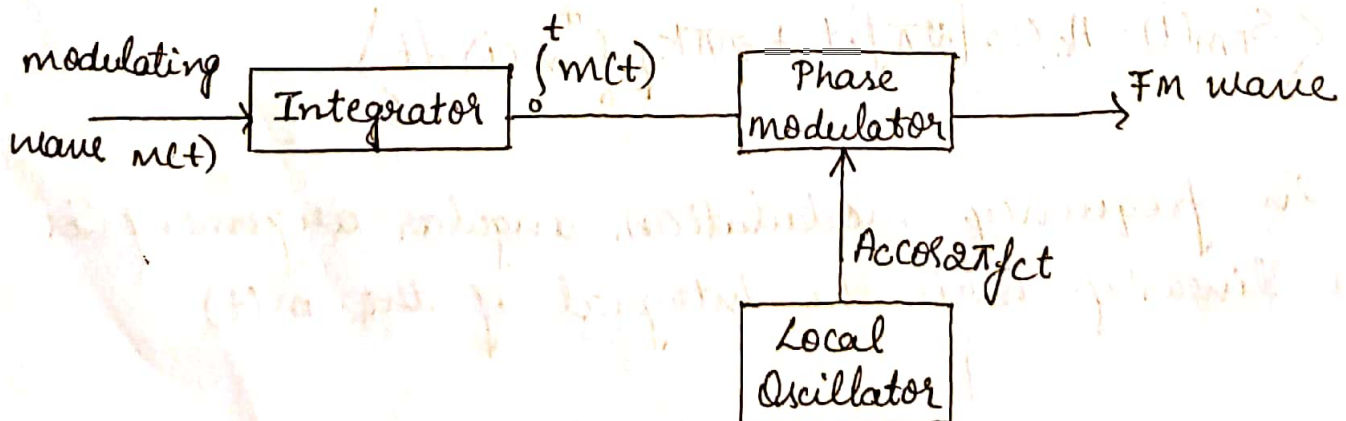 modulating
wave m(t)
Integrator
∫₀ᵗ m(t)
Phase
modulator
FM wave
Accos2πfct
Local
Oscillator